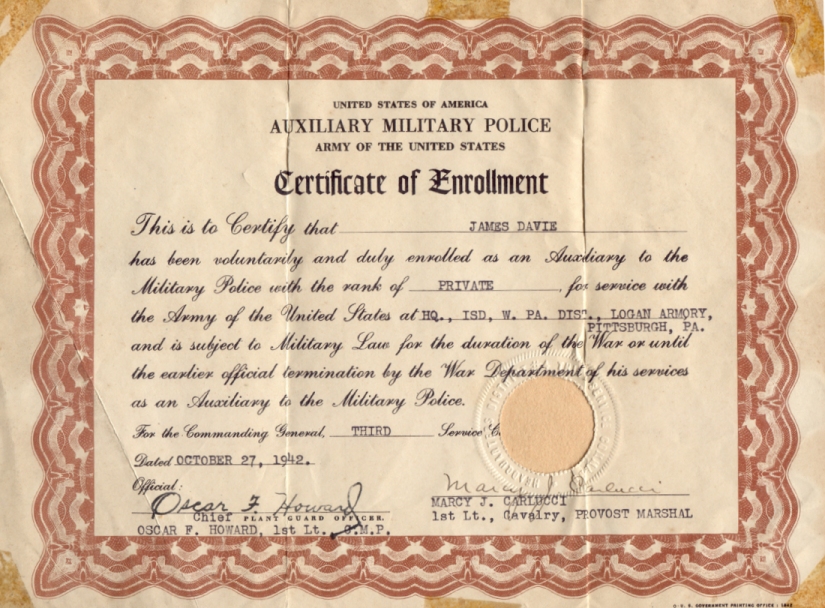 UNITED STATES OF AMERICA
AUXILIARY MILITARY POLICE
ARMY OF THE UNITED STATES
Certificate of Enrollment
This is to Certify that JAMES DAVIE
has been voluntarily and duly enrolled as an Auxiliary to the
Military Police with the rank of PRIVATE , for service with
the Army of the United States at HQ., ISD, W. PA. DIST., LOGAN ARMORY,
PITTSBURGH, PA.
and is subject to Military Law for the duration of the War or until
the earlier official termination by the War Department of his services
as an Auxiliary to the Military Police.
For the Commanding General, THIRD Service
Dated OCTOBER 27, 1942.
Official:
Oscar F. Howard
Chief PLANT GUARD OFFICER.
OSCAR F. HOWARD, 1st Lt., M.P.
Marcy J. Carlucci
MARCY J. CARLUCCI
1st Lt., Cavalry, PROVOST MARSHAL
U. S. GOVERNMENT PRINTING OFFICE : 1942